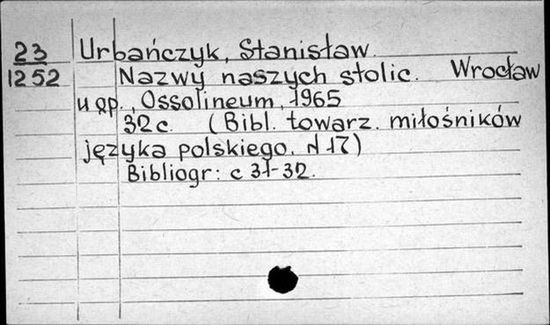 23
1252
Urbańczyk, Stanisław
Nazwy naszych stolic. Wrocław
u ąp., Ossolineum, 1965
32 c. (Bibl. towarz. miłośników
języka polskiego. N 17)
Bibliogr: c 31-32.